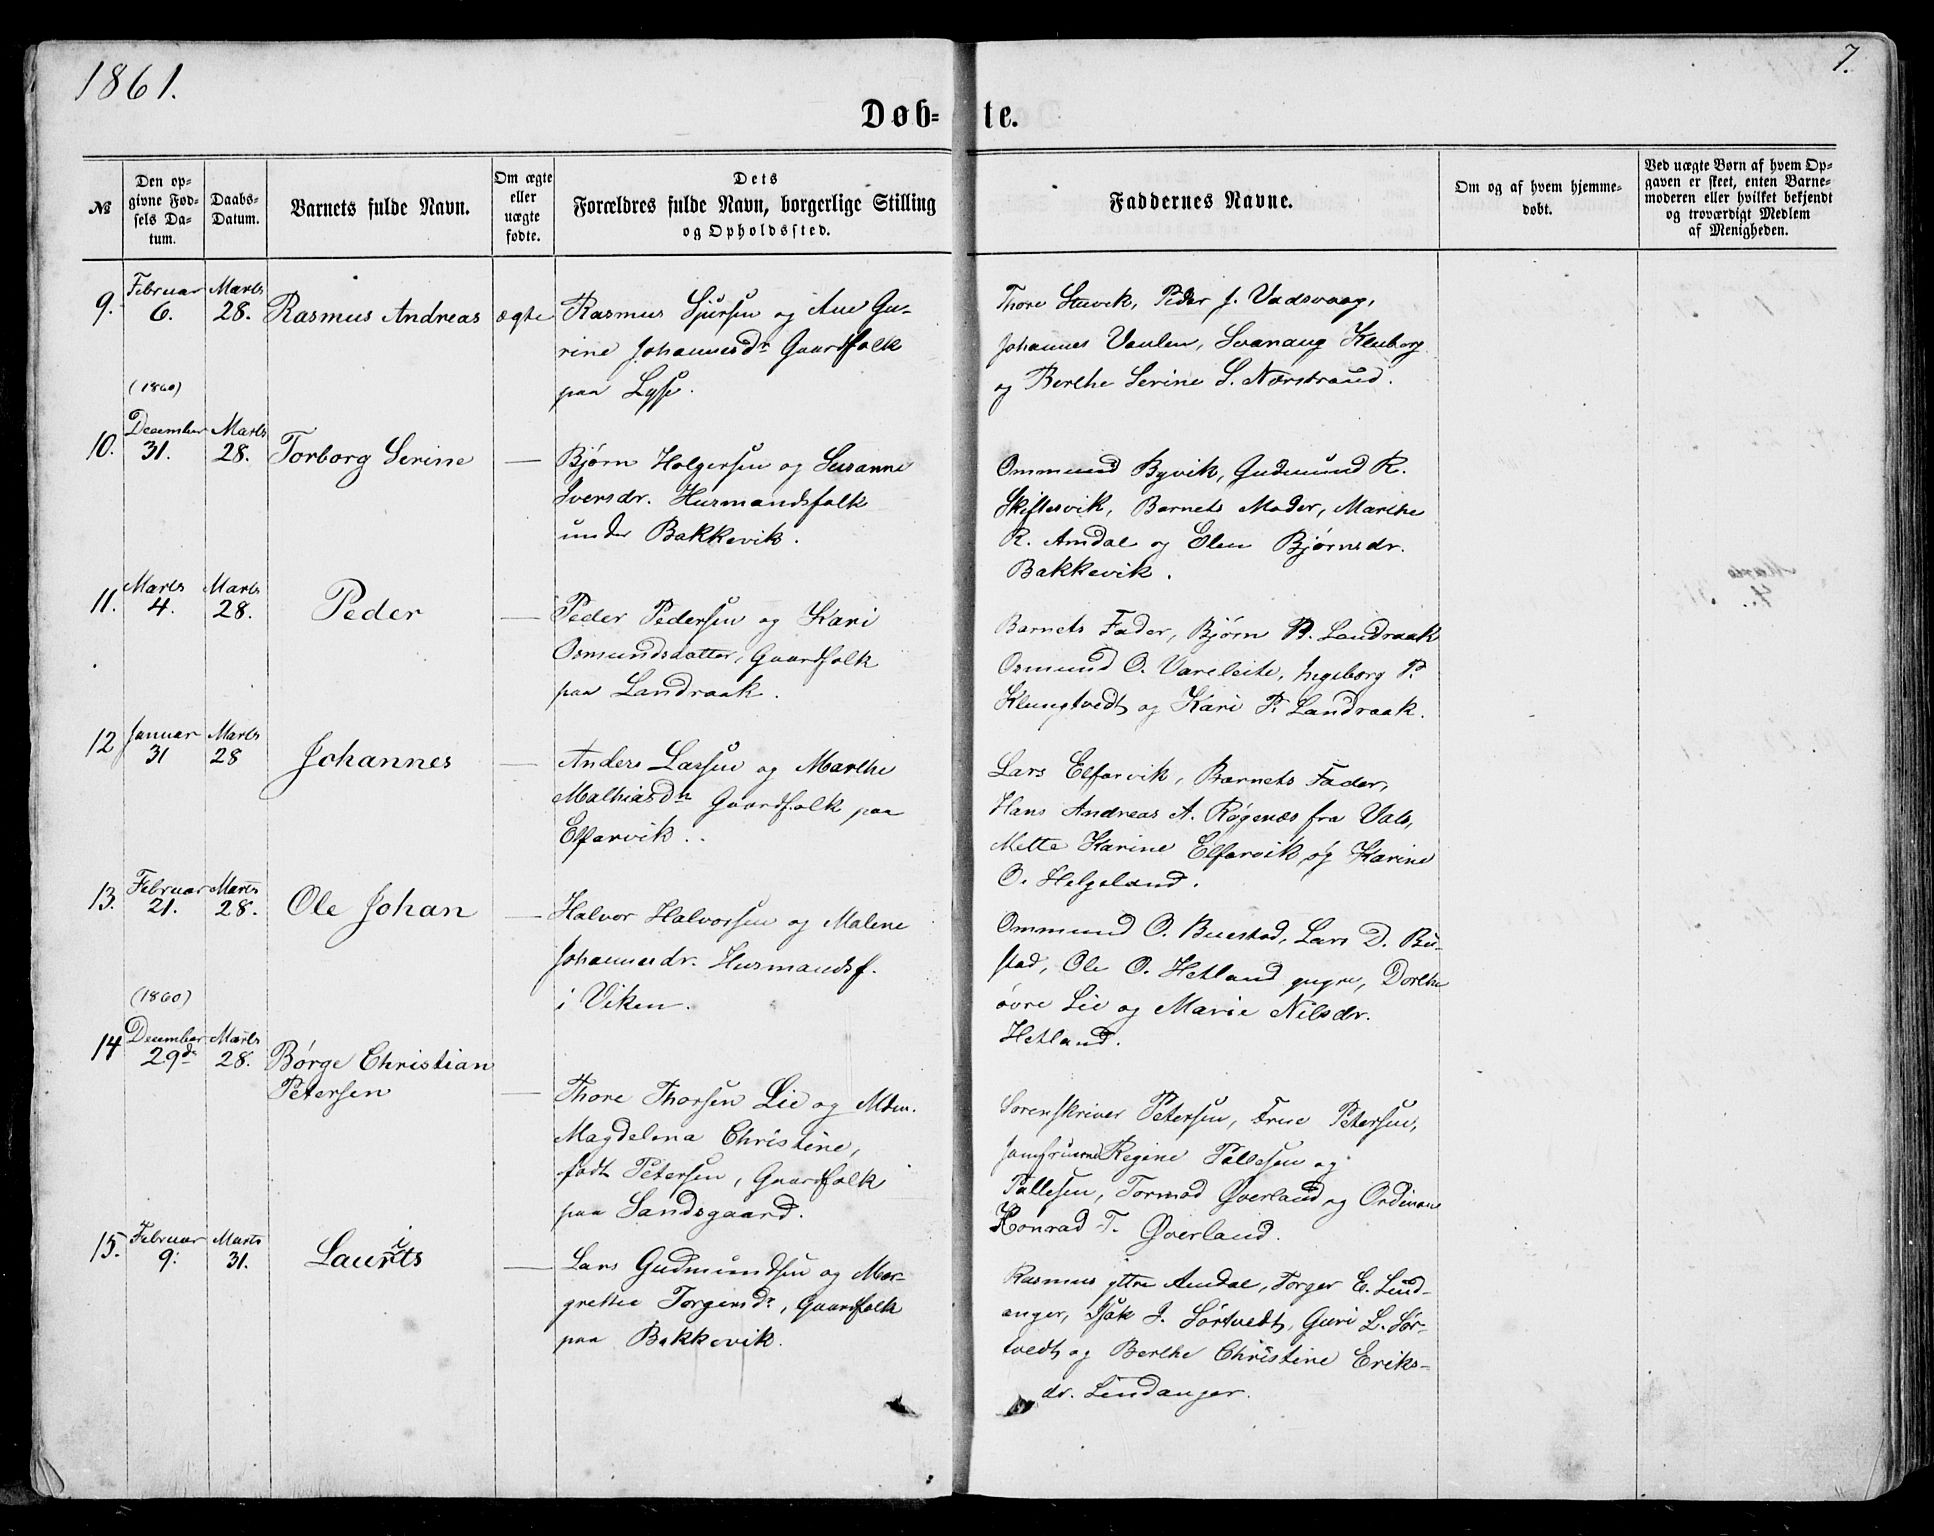 1861.
7.
Døb-te.
№
Den op-
givne Fød-
sels Da-
tum.
Daabs-
Datum.
Barnets fulde Navn.
Om ægte
eller
uægte
fødte.
Dets
Forældres fulde Navn, borgerlige Stilling
og Opholdssted.
Faddernes Navne.
Om og af hvem hjemme-
døbt.
Ved uægte Børn af hvem Op-
gaven er skeet, enten Barne-
moderen eller hvilket bekjendt
og troværdigt Medlem
af Menigheden.
9. Februar 6. Marts 28. Rasmus Andreas ægte
Rasmus Sjursen og Ane Gu-
rine Johannesdr Gaardfolk
paa Lyse.
Thore Stuvik, Peder J. Vadsvaag,
Johannes Vaulen, Svanaug Kleiberg
og Berthe Serine S. Nærstrand.
(1860)
10. December 31. Marts 28. Torborg Serine —
Bjørn Holgersen og Susanne
Iversdr. Husmandsfolk
under Bakkevik.
Ommund Byvik, Gudmund R.
Skiftesvik, Barnets Moder, Marthe
R. Amdal og Elen Bjørnsdr.
Bakkevik.
11. Marts 4. Marts 28. Peder —
Peder Pedersen og Kari
Osmundsdatter, Gaardfolk
paa Landraak.
Barnets Fader, Bjørn B. Landraak
Osmund O. Vareleite, Ingeborg P.
Klungtvedt og Kari P. Landraak.
12 Januar 31 Marts 28 Johannes —
Anders Larsen og Marthe
Mathiasdr Gaardfolk paa
Elfarvik.
Lars Elfarvik, Barnets Fader,
Hans Andreas A. Røgenæs fra Vals,
Mette Karine Elfarvik og Karine
O. Helgeland.
13. Februar 21. Marts 28. Ole Johan —
Halvor Halvorsen og Malene
Johannesdr. Husmandsf.
i Viken.
Ommund O. Buestad, Lars D. Bu-
stad, Ole O. Hetland yngre, Dorthe
øvre Lie og Marie Nilsdr.
Hetland.
(1860)
14 December 29de Marts 28. Børge Christian
Petersen —
Thore Thorsen Lie og Mdm.
Magdelena Christine,
født Petersen, Gaardfolk
paa Sandsgaard.
Sorenskriver Petersen, Frue Petersen,
Jomfruerne Regine Pallesen og
Pallesen, Tormod Øverland og
Konrad T. Øverland.
15. Februar 9. Marts 31. Laurits —
Lars Gudmundsen og Mar-
grethe Torgersdr, Gaardfolk
paa Bakkevik.
Rasmus ytre Amdal, Torger E. Lind-
anger, Isak J. Sørtvedt, Guri L. Sør-
tvedt og Berthe Christine Eriks-
dr. Lindanger.